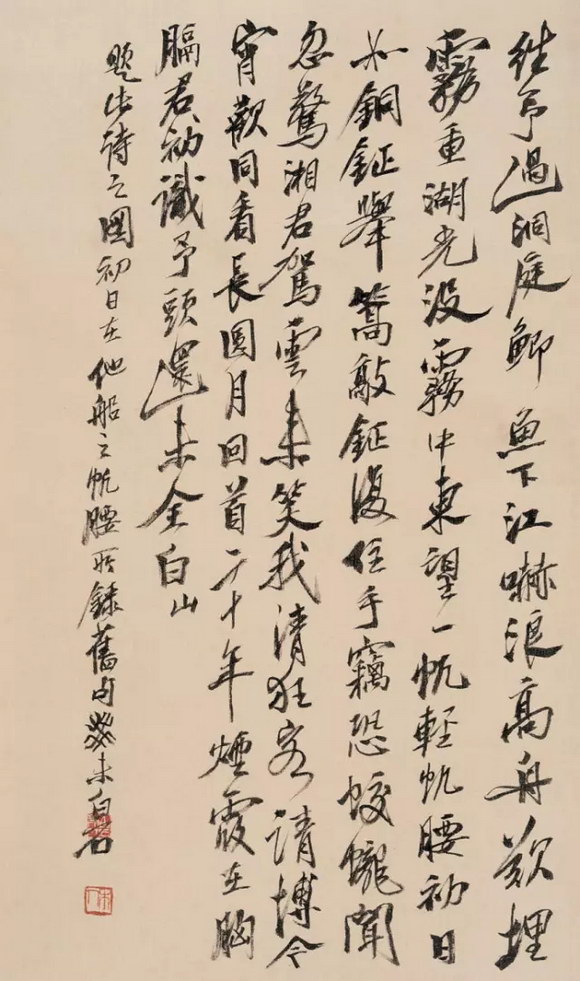 往予過洞庭鯽魚下江嚇浪高舟欲埋
霧重湖光没霧中東望一帆輕帆腰初日
如銅鉦舉篙敲鉦復住手竊恐蛟龍聞
忽驚湘君駕雲来笑我清狂客請博今
宵歡同看長圓月回首二十年煙霞在胸
膈君初識予頭還未全白山
題此詩之圖初日在他船之帆腰錄舊句癸未白石
木人